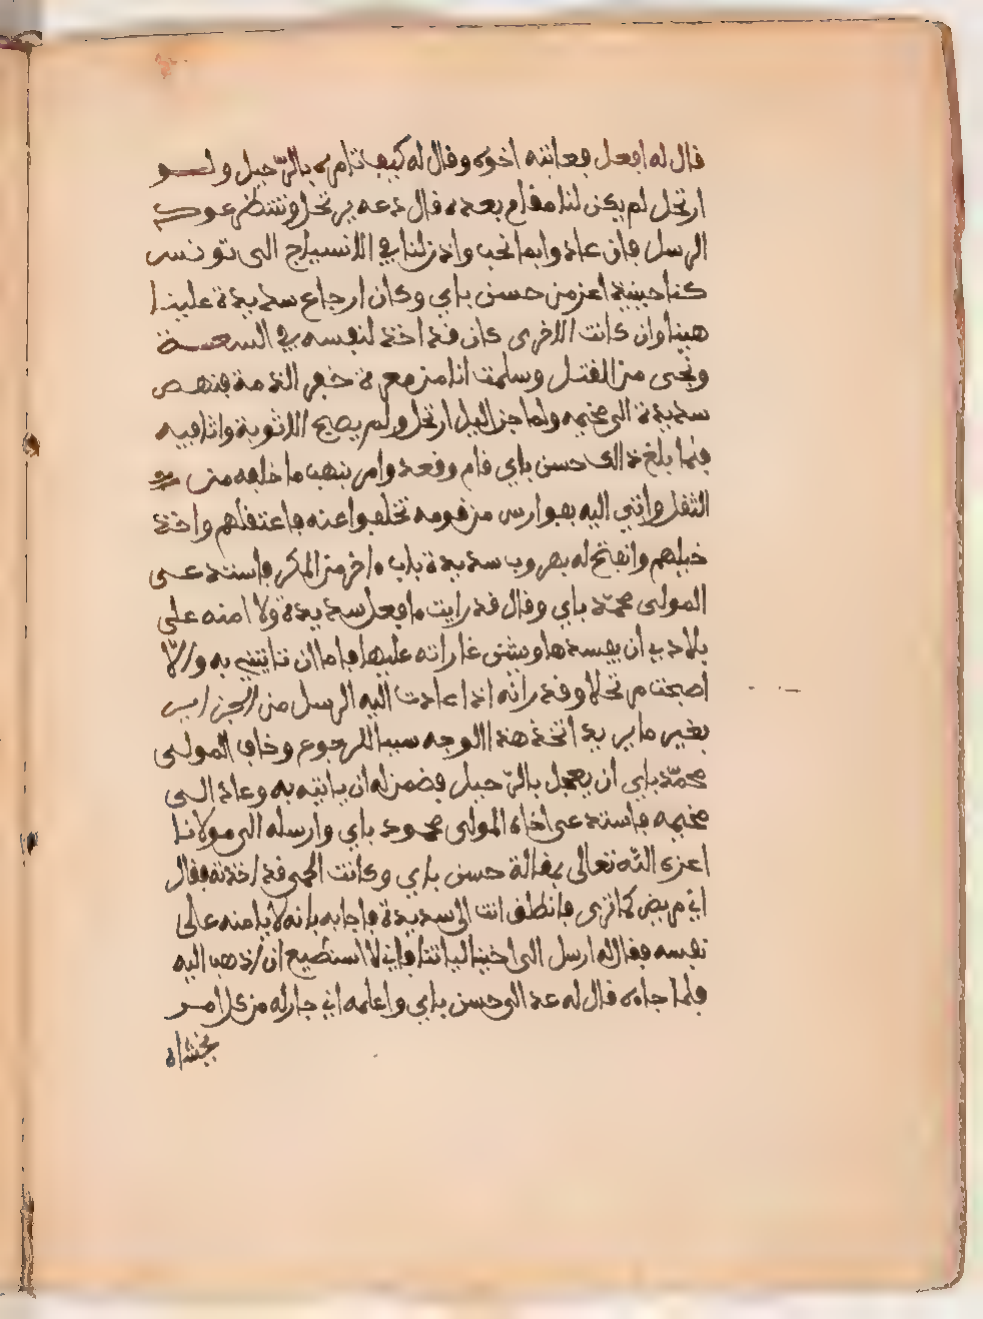 قال له افعل فعاتبه اخوه وقال له كيف تامره بالرّحيل ولو
ارتحل لم يكن لنا مقام بعده قال دعه يرتحل وننتظر عود
الرسل فان عادوا بما نحب واذن لنا في الانسياح الى تونس
كنا حينيذ اعز من حسن باي وكان ارجاع سديدة علينا
هينا وان كانت الاخرى كان قد اخذ لنفسه في السعة
ونجى من القتل وسلمت انا من معرة خفر الذمة فنهض
سديدة الى مخيمه ولما جن اليل ارتحل ولم يصبح الا ثوية واثافيه
فلما بلغ ذالك حسن باي قام وقعد وامر بنهب ما خلفه من
الثقل واتي اليه بفوارس من قومه تخلفوا عنه فاعتقلهم واخذ
خيلهم وانفتح له بهروب سديدة باب ءاخر من المكر فاستدعى
المولى محمّد باي وقال قد رايت ما فعل سديدة ولا امنه على
بلادي ان يفسدها ويشن غاراته عليها فاما ان تاتيني به والّا
اصبحت مرتحلا وقدر انه اذا عادت اليه الرسل من الجزاير
بغير ما يريد اتخذ هذا الوجه سببا للرجوع وخاف المولى
محمّد باي ان يعجل بالرّحيل فضمن له ان ياتيه به وعاد الى
مخيمه فاستدعى اخاه المولى محمود باي وارسله الى مولانا
اعزه الله تعالى بمقالة حسن باي وكانت الحمى قد اخذته فقال
اني مريض كما ترى فانطلق انت الى سديدة فاجابه بانه لا يامنه على
نفسه فقال له ارسل الى اخينا لياتنا فاني لا استطيع ان اذهب اليه
فلما جاءه قال له عد الى حسن باي واعلمه اني جار له من كل امر
يخشاه